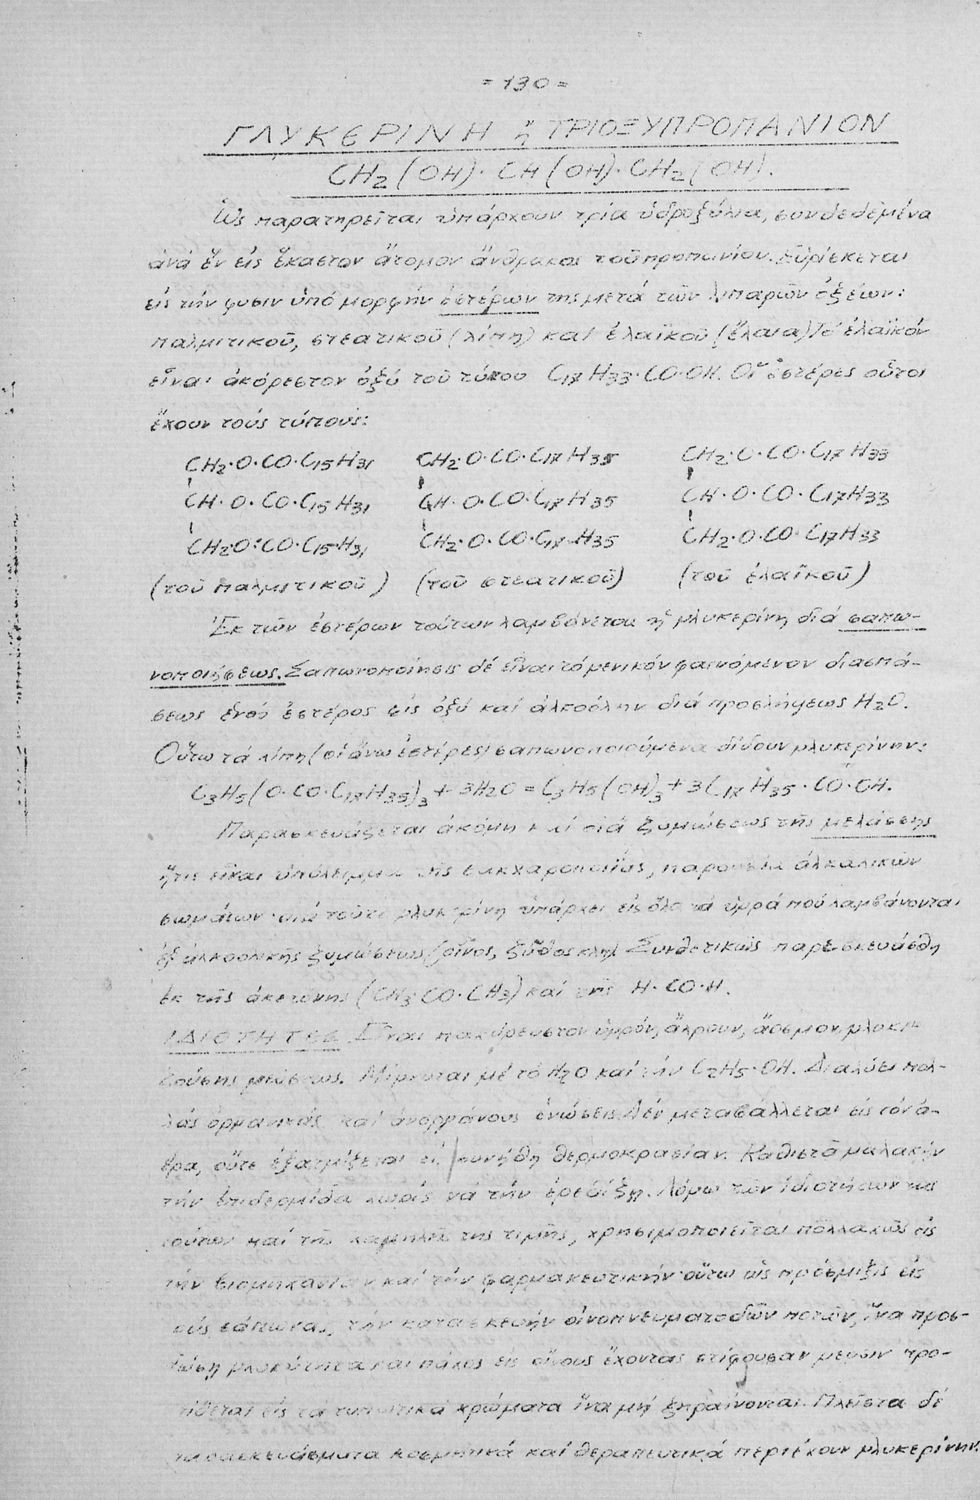 = 130 =
ΓΛΥΚΕΡΙΝΗ ἤ ΤΡΙΟΞΥΠΡΟΠΑΝΙΟΝ
CH2(OH)·CH(OH)·CH2(OH).
Ὡς παρατηρεῖται ὑπάρχουν τρία ὑδροξύλια, συνδεδεμένα
ἀνά ἕν εἰς ἕκαστον ἄτομον ἄνθρακος τοῦ προπανίου. Εὑρίσκεται
εἰς τήν φύσιν ὑπό μορφήν ἐστέρων της μετά τῶν λιπαρῶν ὀξέων:
παλμιτικοῦ, στεατικοῦ (λίπη) καί ἐλαϊκοῦ (ἔλαια) τό ἐλαϊκόν
εἶναι ἀκόρεστον ὀξύ τοῦ τύπου C17H33·CO·OH. Οἵ ἐστέρες οὗτοι
ἔχουν τούς τύπους:
CH2·O·CO·C15H31 CH2·O·CO·C17H35 CH2·O·CO·C17H33
CH·O·CO·C15H31 CH·O·CO·C17H35 CH·O·CO·C17H33
CH2O·CO·C15·H31 CH2·O·CO·C17·H35 CH2·O·CO·C17H33
(τοῦ παλμιτικοῦ) (τοῦ στεατικοῦ) (τοῦ ἐλαϊκοῦ)
Ἐκ τῶν ἐστέρων τούτων λαμβάνεται ἡ γλυκερίνη διά σαπω-
νοποιήσεως. Σαπωνοποίησις δέ εἶναι τό γενικόν φαινόμενον διασπά-
σεως ἑνός ἐστέρος εἰς ὀξύ καί ἀλκοόλην διά προσλήψεως H2O.
Οὕτω τά λίπη (οἱ ἄνω ἐστέρες) σαπωνοποιούμενα δίδουν γλυκερίνην:
C3H5(O·CO·C17H35)3 + 3H2O = C3H5(OH)3 + 3C17H35·CO·OH.
Παρασκευάζεται ἀκόμη καί διά ζυμώσεως τῆς μελάσσης
ἥτις εἶναι ὑπόλειμμα τῆς σακχαροποιΐας, παρουσίᾳ ἀλκαλικῶν
σωμάτων διά τοῦτο γλυκερίνη ὑπάρχει εἰς ὅλα τά ὑγρά πού λαμβάνονται
ἐξ ἀλκοολικῆς ζυμώσεως (οἶνος, ζῦθος κλπ). Συνθετικῶς παρεσκευάσθη
ἐκ τῆς ἀκετόνης (CH3CO·CH3) καί τῆς H·CO·H.
ΙΔΙΟΤΗΤΕΣ Εἶναι παχύρευστον ὑγρόν, ἄχρουν, ἄοσμον, γλυκι-
ζούσης γεύσεως. Μίγνυται μέ τό H2O καί τήν C2H5·OH. Διαλύει πολ-
λάς ὀργανικάς καί ἀνοργάνους ἑνώσεις. Δέν μεταβάλλεται εἰς τόν ἀ-
έρα, οὔτε ἐξατμίζεται εἰς συνήθη θερμοκρασίαν. Καθιστᾶ μαλακήν
τήν ἐπιδερμίδα χωρίς νά τήν ἐρεθίζῃ. Λόγω τῶν ἰδιοτήτων της
τούτων καί τῆς χαμηλῆς της τιμῆς, χρησιμοποιεῖται πολλαχῶς εἰς
τήν βιομηχανίαν καί τήν φαρμακευτικήν οὕτω ὡς πρόσμιξις εἰς
τούς σάπωνας, τήν κατασκευήν οἰνοπνευματωδῶν ποτῶν, ἵνα προσ-
δώσῃ γλυκύτητα καί πάχος εἰς οἴνους ἔχοντας στίφουσαν γεῦσιν προ-
τίθεται εἰς τά τυπωτικά χρώματα ἵνα μή ξηραίνονται. Πλεῖστα δέ
παρασκευάσματα κοσμητικά καί θεραπευτικά περιέχουν γλυκερίνην.